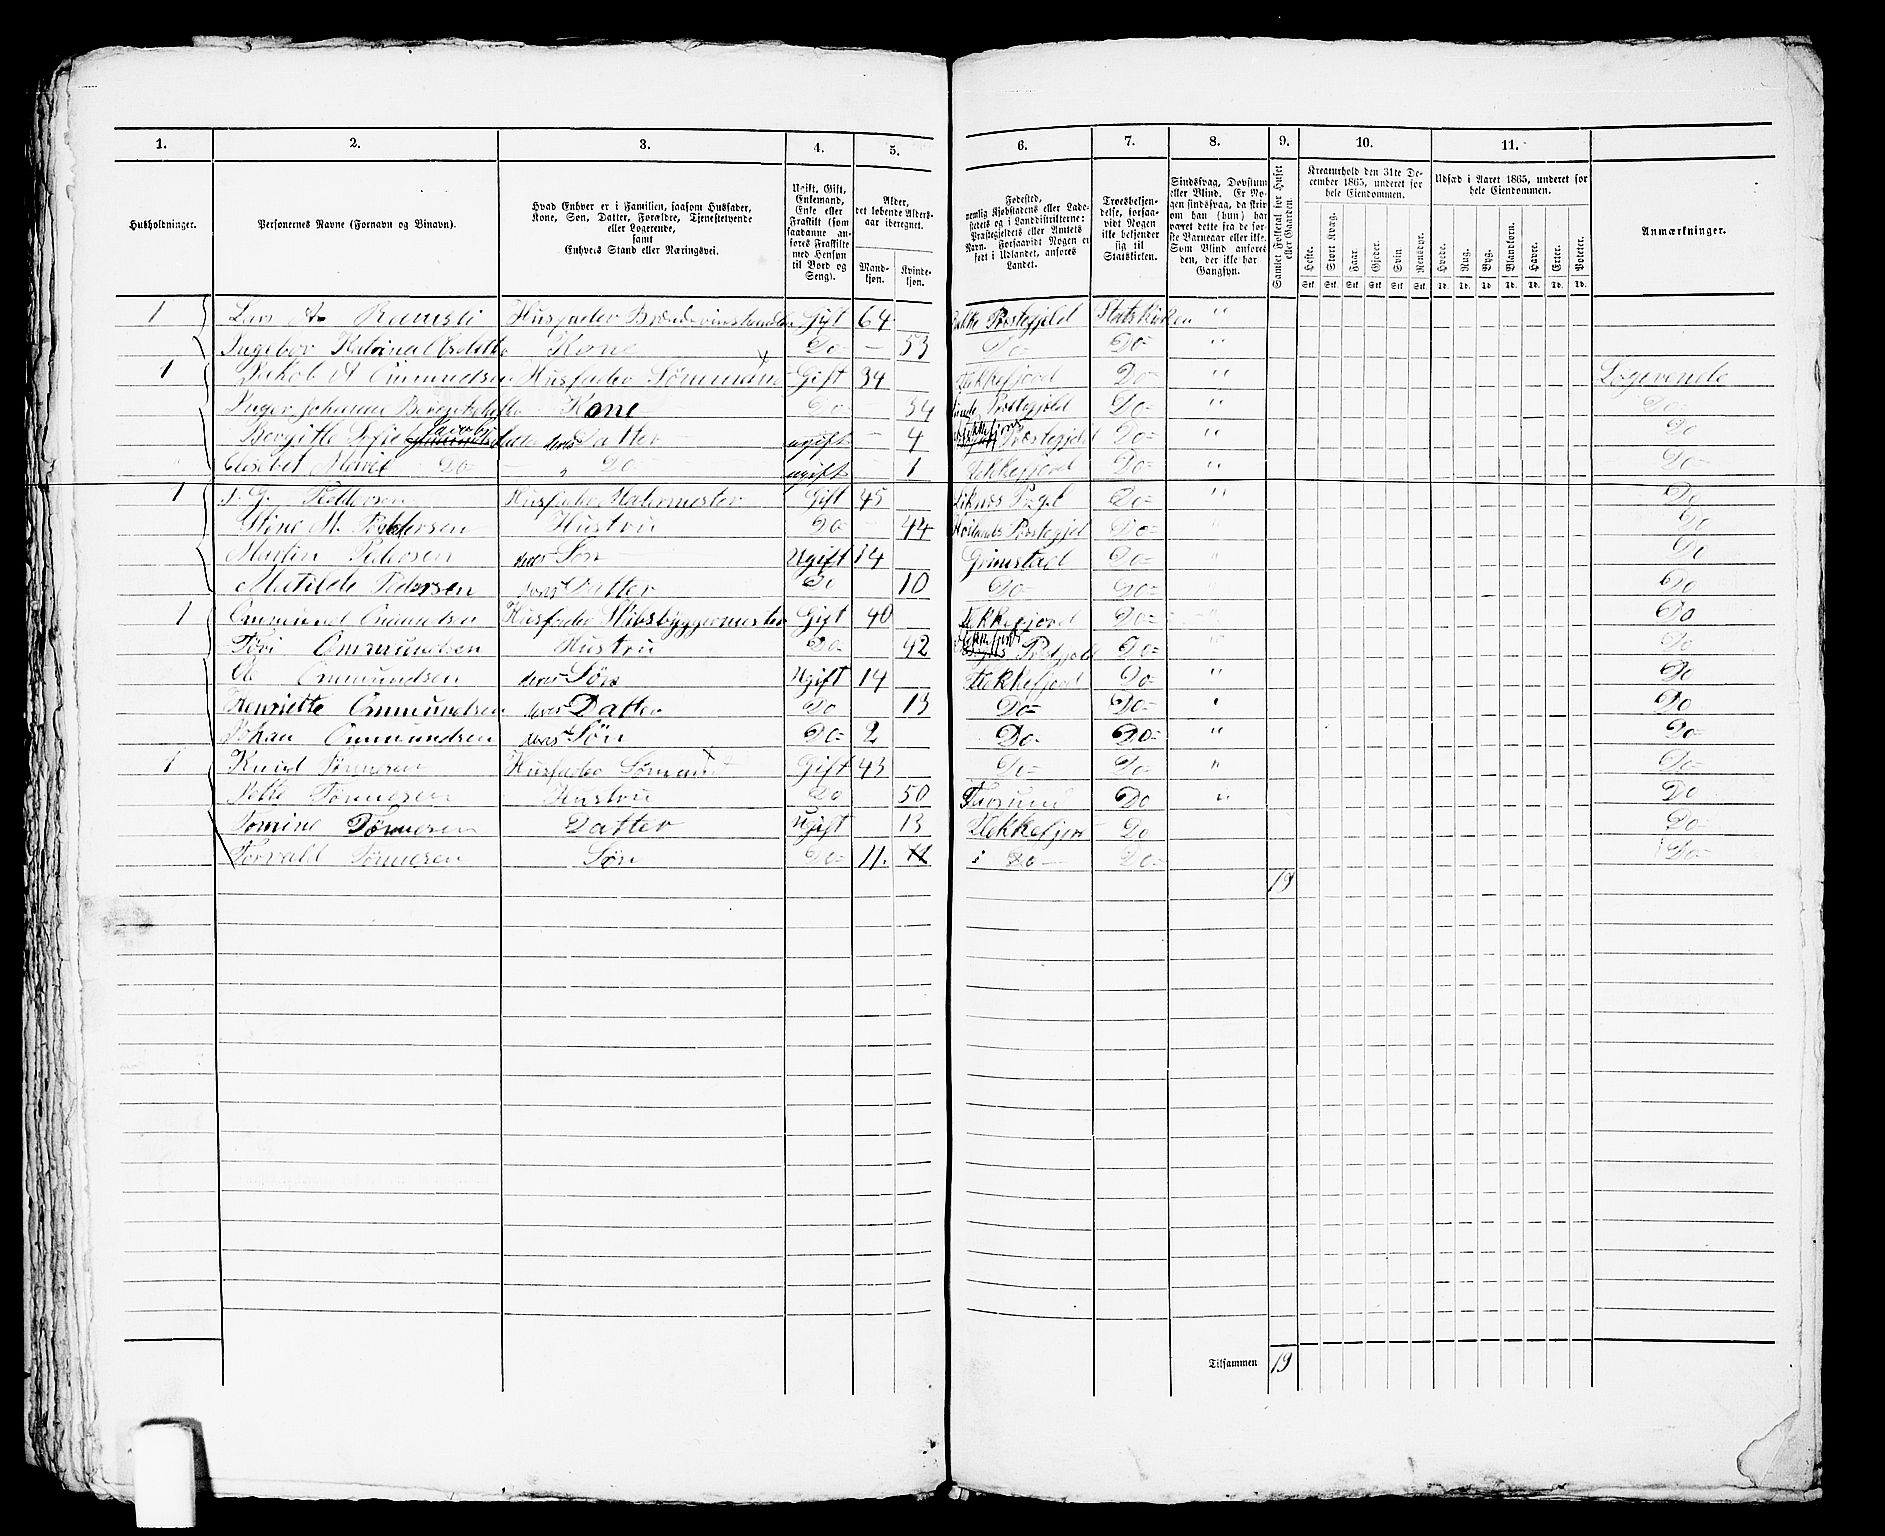 1. 2. 3. 4. 5. 6. 7. 8. 9. 10. 11.
Husholdninger.
Personernes Navne (Fornavn og Binavn).
Hvad Enhver er i Familien, saasom Husfader,
Kone, Søn, Datter, Forældre, Tjenestetyende
eller Logerende,
samt
Enhvers Stand eller Næringsvei.
Ugift, Gift,
Enkemand,
Enke eller
Fraskilt (som
saadanne an-
føres Fraskilte
med Hensyn
til Bord og
Seng).
Alder,
det løbende Alders-
aar iberegnet.
Mand-
kjøn.
Kvinde-
kjøn.
Fødested,
nemlig Kjøbstadens eller Lade-
stedets og i Landdistrikterne:
Præstegjeldets eller Amtets
Navn. Forsaavidt Nogen er
født i Udlandet, anføres
Landet.
Troesbekjen-
delse, forsaa-
vidt Nogen
ikke bekjender
sig til
Statskirken.
Sindssvag, Døvstum
eller Blind. Er No-
gen sindssvag, da skri-
ves om han (hun) har
været dette fra de før-
ste Barneaar eller ikke.
Som Blind anføres
den, der ikke har
Gangsyn.
Samlet Folketal for Huset
eller Gaarden.
Kreaturhold den 31te De-
cember 1865, underet for
hele Eiendommen.
Heste. Stort Kvæg. Faar. Gjeder. Svin. Rensdyr.
Stk. Stk. Stk. Stk. Stk. Stk.
Udsæd i Aaret 1865, underet for
hele Eiendommen.
Hvede. Rug. Byg. Blandkorn. Havre. Erter. Poteter.
Td. Td. Td. Td. Td. Td. Td.
Anmærkninger.
1 Lars A. Ramsli Husfader Brændevinshandler Gift 64 Bakke Præstegjeld Statskirken "
Ingebor Katrina Kone Do- - 53 Do- Do- "
1 Jakob A Ommundsen Husfader Sømmand Gift 34 Flekkefjord Do- " Logerende
Inger Johanne Kone Do- 34 Præstegjeld Do- " Do-
Bergitte Sofie Jacobs deres Datter ugift - 4 Flekkefjords Præstegjeld Do- " Do
Elisabet Marie Do- Do- ugift - 1 Flekkefjord Do- " Do-
1 Peddersen Husfader Malermester Gift 45 Liknes Pgjel Do- " Do
Stine M. Peddersen Hustru Do- - 44 Præstegjel Do- " Do
Martin Pedersen deres Søn Ugift 14 Grimstad Do- " Do
Matilde Pedersen deres Datter Do 10 Do- Do- " Do
1 Ommund Ommundsen Husfader Skibsbyggermester Gift 40 Flekkefjord Do- Do
Ommundsen Hustru Do- 42 Præstgjeld Do- " Do
Ommundsen deres Søn Ugift 14 Flekkefjord Do- " Do
Henriette Ommundsen deres Datter Do 13 Do- Do- " Do
Johan Ommundsen deres Søn Do- 2 Do- Do- " Do-
1 Knud Tønnesen Husfader Sømand Gift 43 Do- Do- " Do-
Tønnesen Hustru Do 50 Farsund Do " Do
Tomine Tønnesen Datter Ugift 13 Flekkefjord Do Do-
Torvald Tønnesen Søn Do- 11. 11 Do- Do- Do-
19
Tilsammen 19